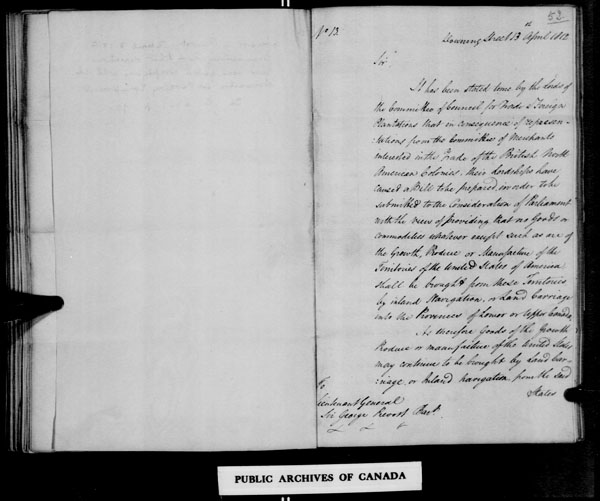 52.
No 13
Downing Street 13th April 1812
Sir,
It has been stated to me by the Lords of
the Committee of Council for Trade & Foreign
Plantations that in consequence of represen-
-tations from the Committee of Merchants
interested in the Trade of the British North
American Colonies, their Lordships have
caused a Bill to be prepared in order to be
submitted to the Consideration of Parliament
with the view of providing that no Goods or
commodities whatever except such as are of
the Growth, Produce or Manufacture of the
Territories of the United States of America
shall be brought from those Territories
by inland Navigation, or Land Carriage
into the Provinces of Lower or Upper Canada
As therefore Goods of the Growth
Produce or manufacture of the United States
may continue to be brought by Land Car-
:riage, or Inland navigation from the said
States
To
Lieutenant General
Sir George Prevost Bart.
PUBLIC ARCHIVES OF CANADA